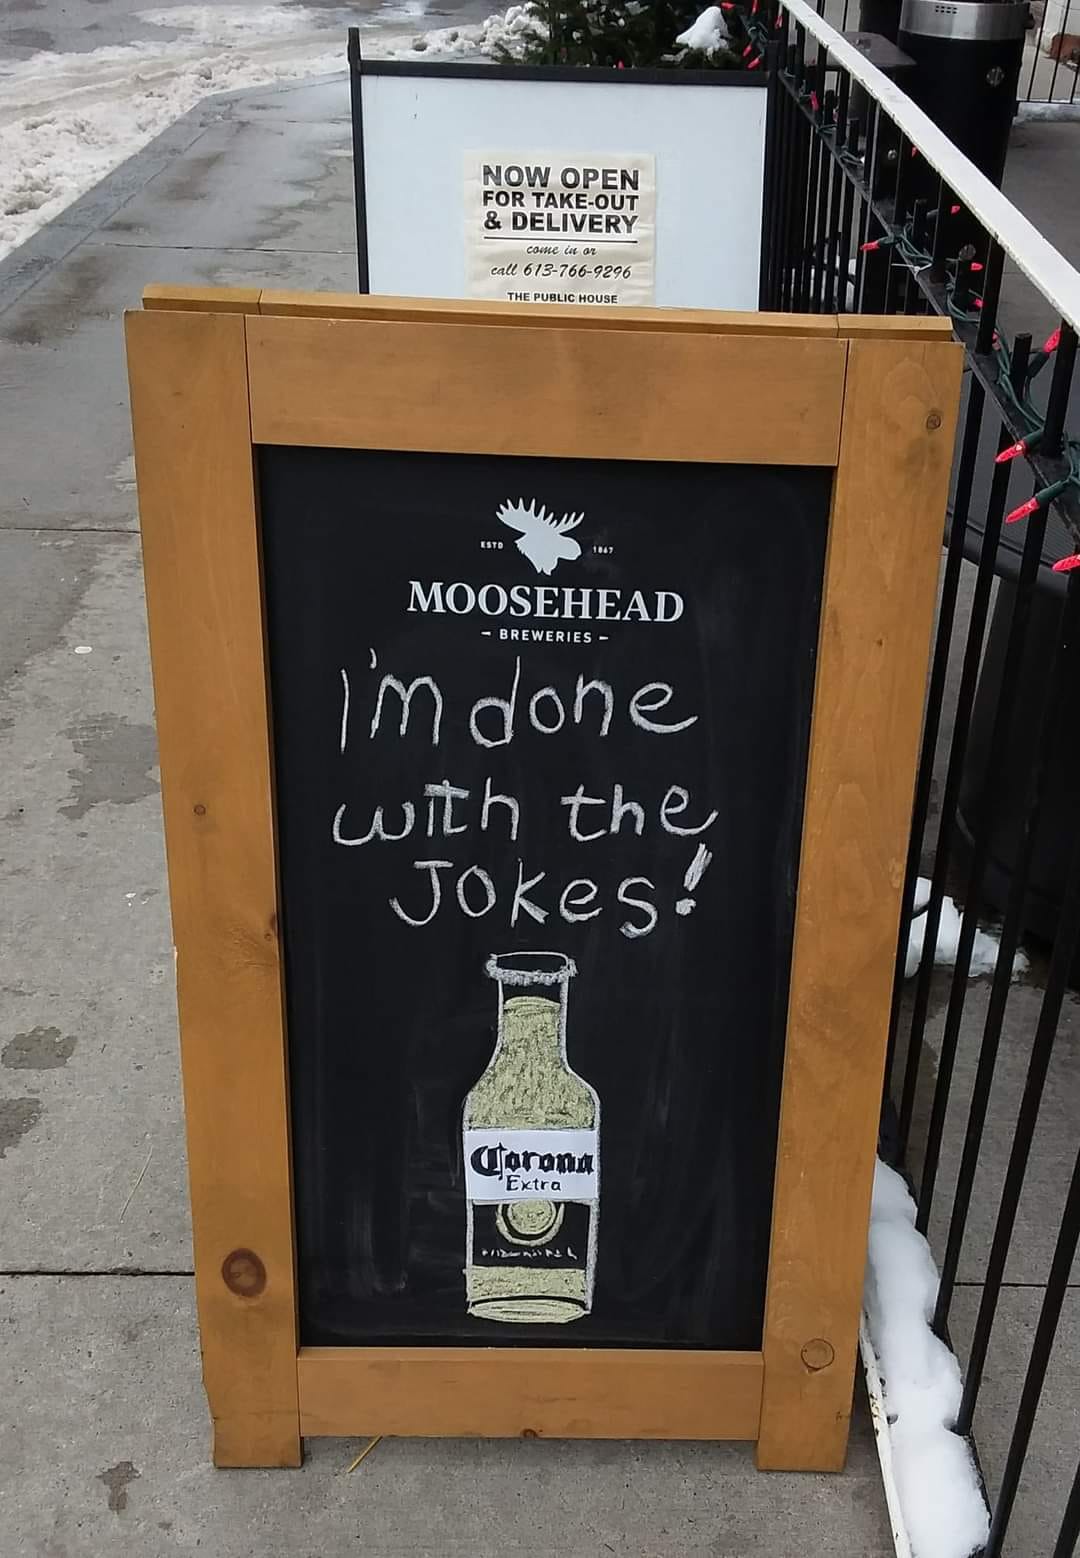 NOW OPEN
FOR TAKE-OUT
& DELIVERY
come in or
call 613-766-9296
THE PUBLIC HOUSE
ESTD 1867
MOOSEHEAD
- BREWERIES -
I'm done
with the
Jokes!
Corona
Extra